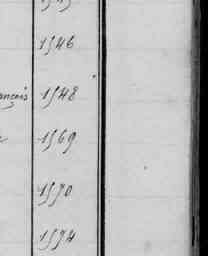 1546
ançais 1548
1569
1570
1574